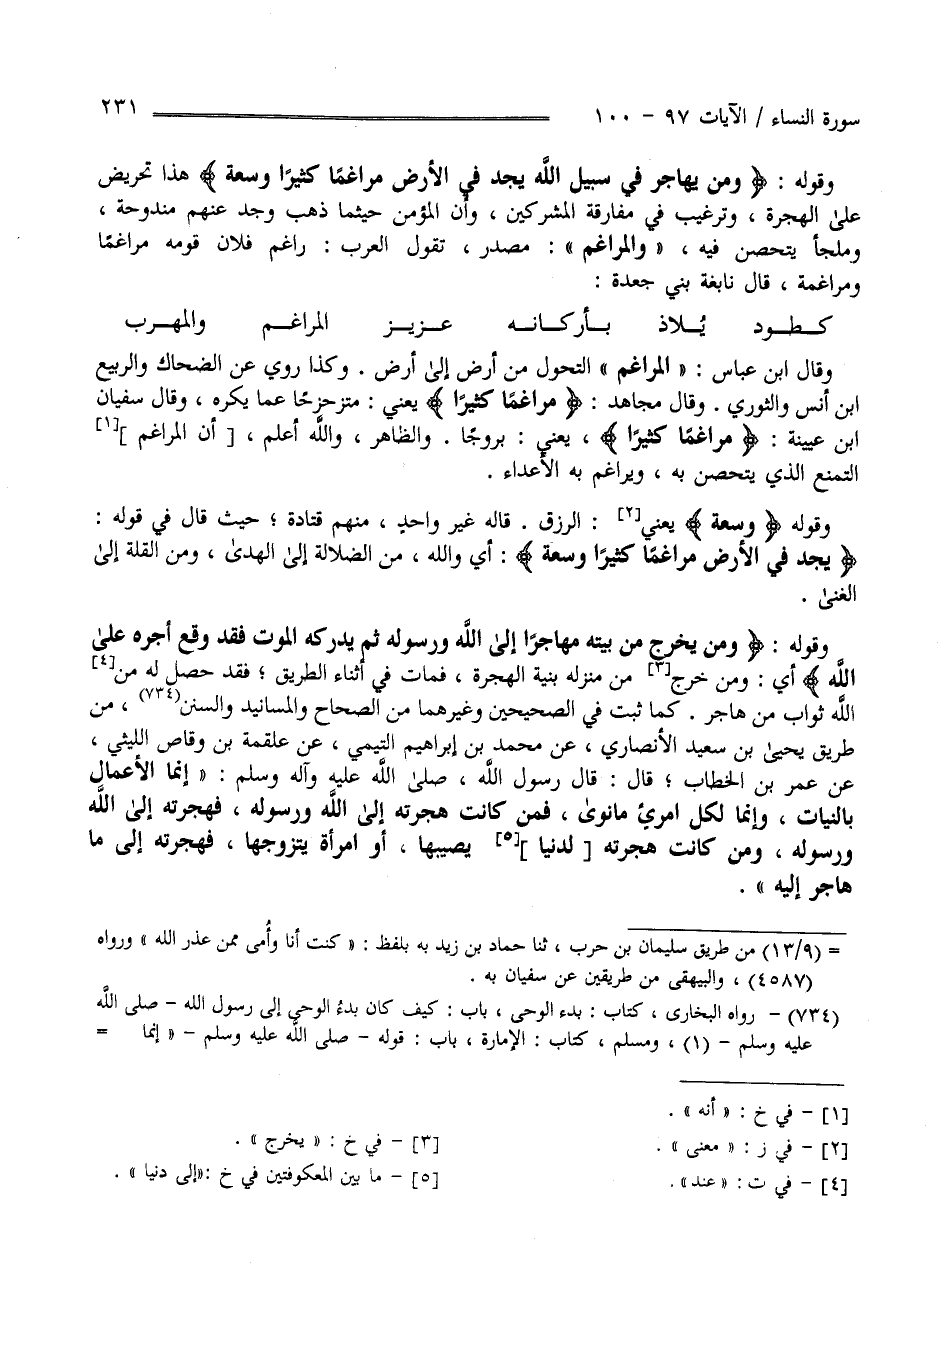 سورة النساء / الآيات ٩٧ - ١٠٠
٢٣١
وقوله : ﴿ ومن يهاجر في سبيل اللَّه يجد في الأرض مراغمًا كثيرًا وسعة ﴾ هذا تحريض
علىٰ الهجرة ، وترغيب في مفارقة المشركين ، وأن المؤمن حيثما ذهب وجد عنهم مندوحة ،
وملجأ يتحصن فيه ، « والمراغم » : مصدر ، تقول العرب : راغم فلان قومه مراغمًا
ومراغمة ، قال نابغة بني جعدة :
كـطـود يُـلاذ بـأركـانـه عـزيـز المراغـم والمهـرب
وقال ابن عباس : « المراغم » التحول من أرض إلىٰ أرض . وكذا روي عن الضحاك والربيع
ابن أنس والثوري . وقال مجاهد : ﴿ مراغمًا كثيرًا ﴾ يعني : متزحزحًا عما يكره ، وقال سفيان
ابن عيينة : ﴿ مراغمًا كثيرًا ﴾ ، يعني : بروجًا . والظاهر ، واللَّه أعلم ، [ أن المراغم ][١]
التمنع الذي يتحصن به ، ويراغم به الأعداء .
وقوله ﴿ وسعة ﴾ يعني[٢] : الرزق . قاله غير واحدٍ ، منهم قتادة ؛ حيث قال في قوله :
﴿ يجد في الأرض مراغمًا كثيرًا وسعة ﴾ : أي والله ، من الضلالة إلىٰ الهدىٰ ، ومن القلة إلىٰ
الغنىٰ .
وقوله : ﴿ ومن يخرج من بيته مهاجرًا إلىٰ اللَّه ورسوله ثم يدركه الموت فقد وقع أجره علىٰ
اللَّه ﴾ أي : ومن خرج[٣] من منزله بنية الهجرة ، فمات في أثناء الطريق ؛ فقد حصل له من[٤]
اللَّه ثواب من هاجر . كما ثبت في الصحيحين وغيرهما من الصحاح والمسانيد والسنن(٧٣٤) ، من
طريق يحيىٰ بن سعيد الأنصاري ، عن محمد بن إبراهيم التيمي ، عن علقمة بن وقاص الليثي ،
عن عمر بن الخطاب ؛ قال : قال رسول اللَّه ، صلىٰ اللَّه عليه وآله وسلم : « إنما الأعمال
بالنيات ، وإنما لكل امرئ مانوىٰ ، فمن كانت هجرته إلىٰ اللَّه ورسوله ، فهجرته إلىٰ اللَّه
ورسوله ، ومن كانت هجرته [ لدنيا ][٥] يصيبها ، أو امرأة يتزوجها ، فهجرته إلى ما
هاجر إليه » .
= (١٣/٩) من طريق سليمان بن حرب ، ثنا حماد بن زيد به بلفظ : « كنت أنا وأُمى ممن عذر الله » ورواه
(٤٥٨٧) ، والبيهقى من طريقين عن سفيان به .
(٧٣٤) - رواه البخارى ، كتاب : بدء الوحى ، باب : كيف كان بدءُ الوحي إلى رسول الله - صلى اللَّه
عليه وسلم - (١) ، ومسلم ، كتاب : الإمارة ، باب : قوله - صلى اللَّه عليه وسلم - « إنما =
[١] - في خ : « أنه » .
[٢] - في ز : « معنى » .
[٣] - في خ : « يخرج » .
[٤] - في ت : «عند» .
[٥] - ما بين المعكوفتين في خ :«إلى دنيا » .